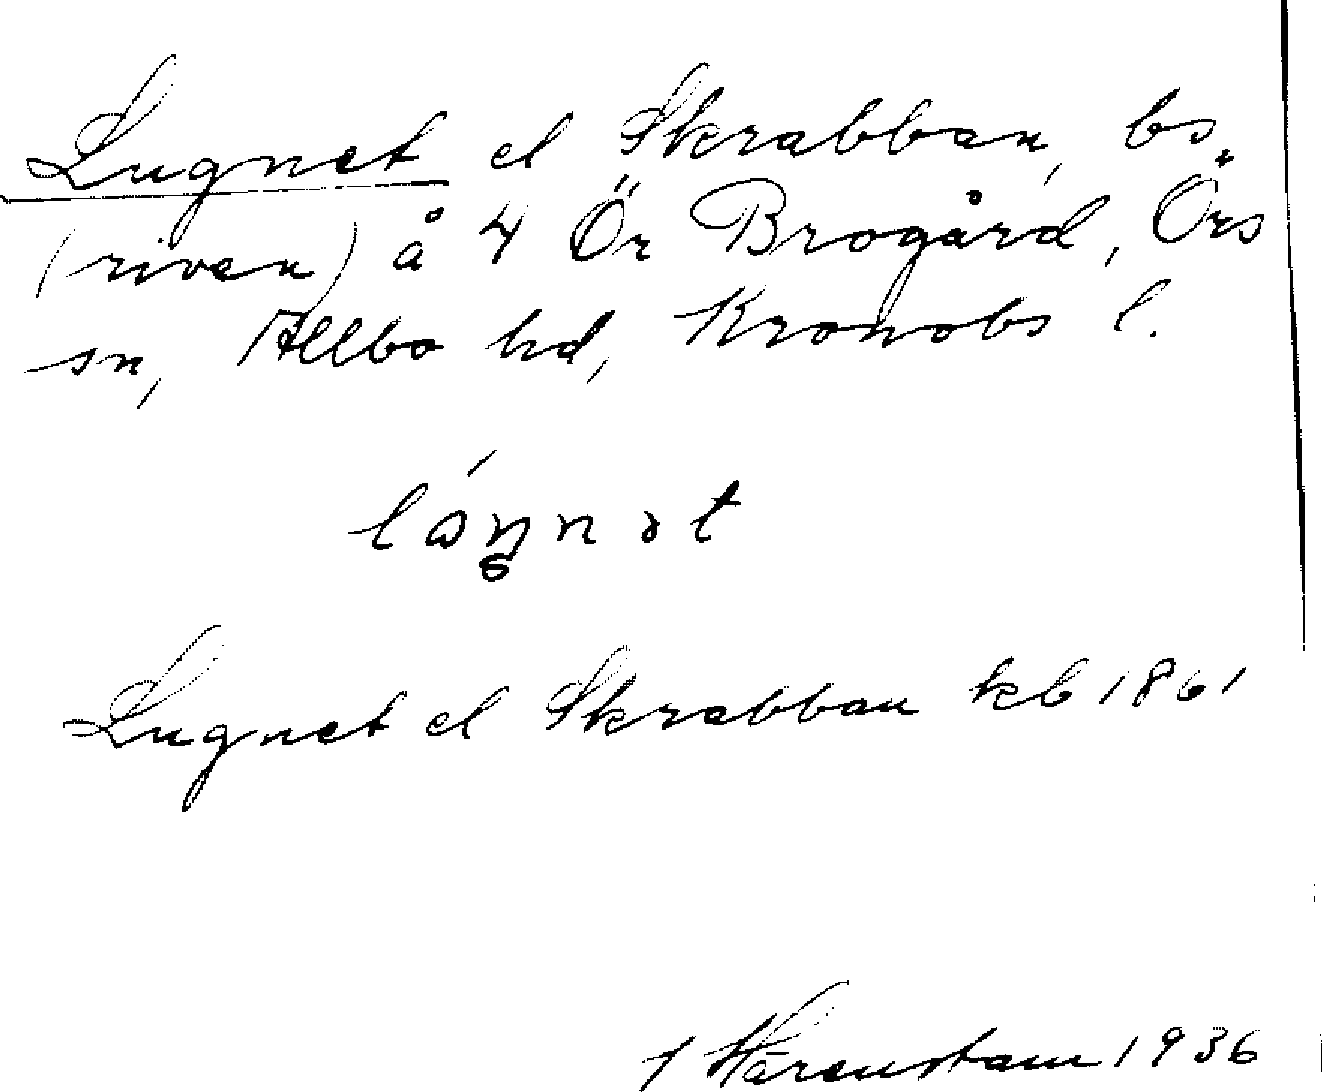 Lugnet el Skrabban, bs.
(riven) å 4 Ör Brogård, Örs
sn, Allbo hd, Kronobs l.
Lugnet el Skrabban kb 1861
1936